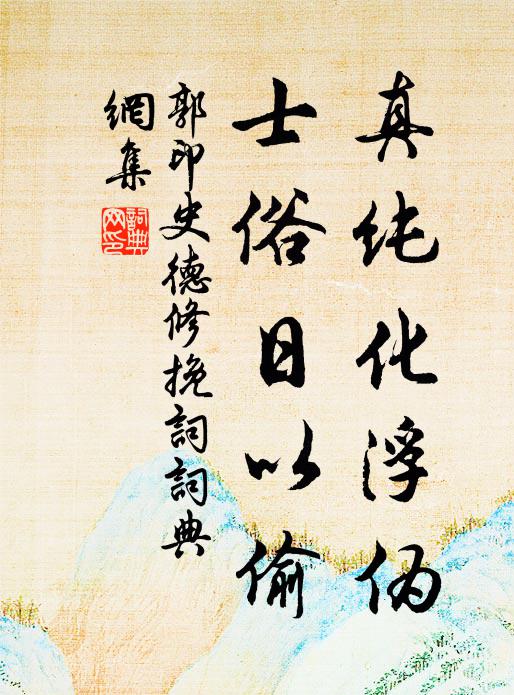 真纯化浮伪
士俗日以偷
郭印史德修挽詞詞典
網集
詞典
网印